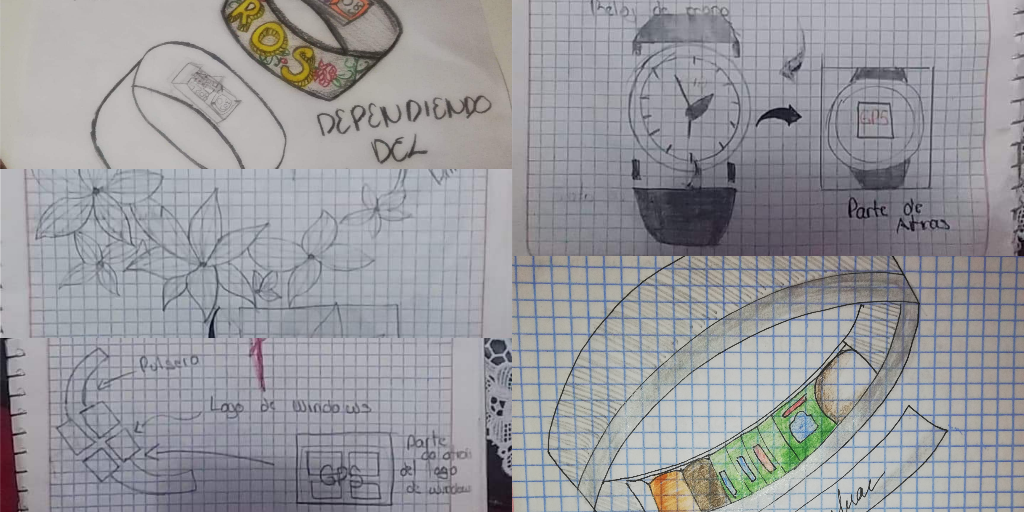 ROS
DEPENDIENDO
DEL
Reloj de mano
GPS
Parte de
Atras
Pulsera
Logo de windows
GPS
Parte
de atras
del logo
de windows